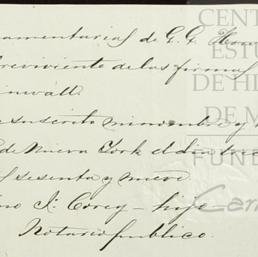 amentarias de G. G. How
breviviente de las firmas
inwall
e suscrito mi nombre y
de Nueva York el dia
sesenta y nueve
no J. Corey - hijo
Notario publico.
CENT
ESTU
DE HI
DE M
FUND
Car